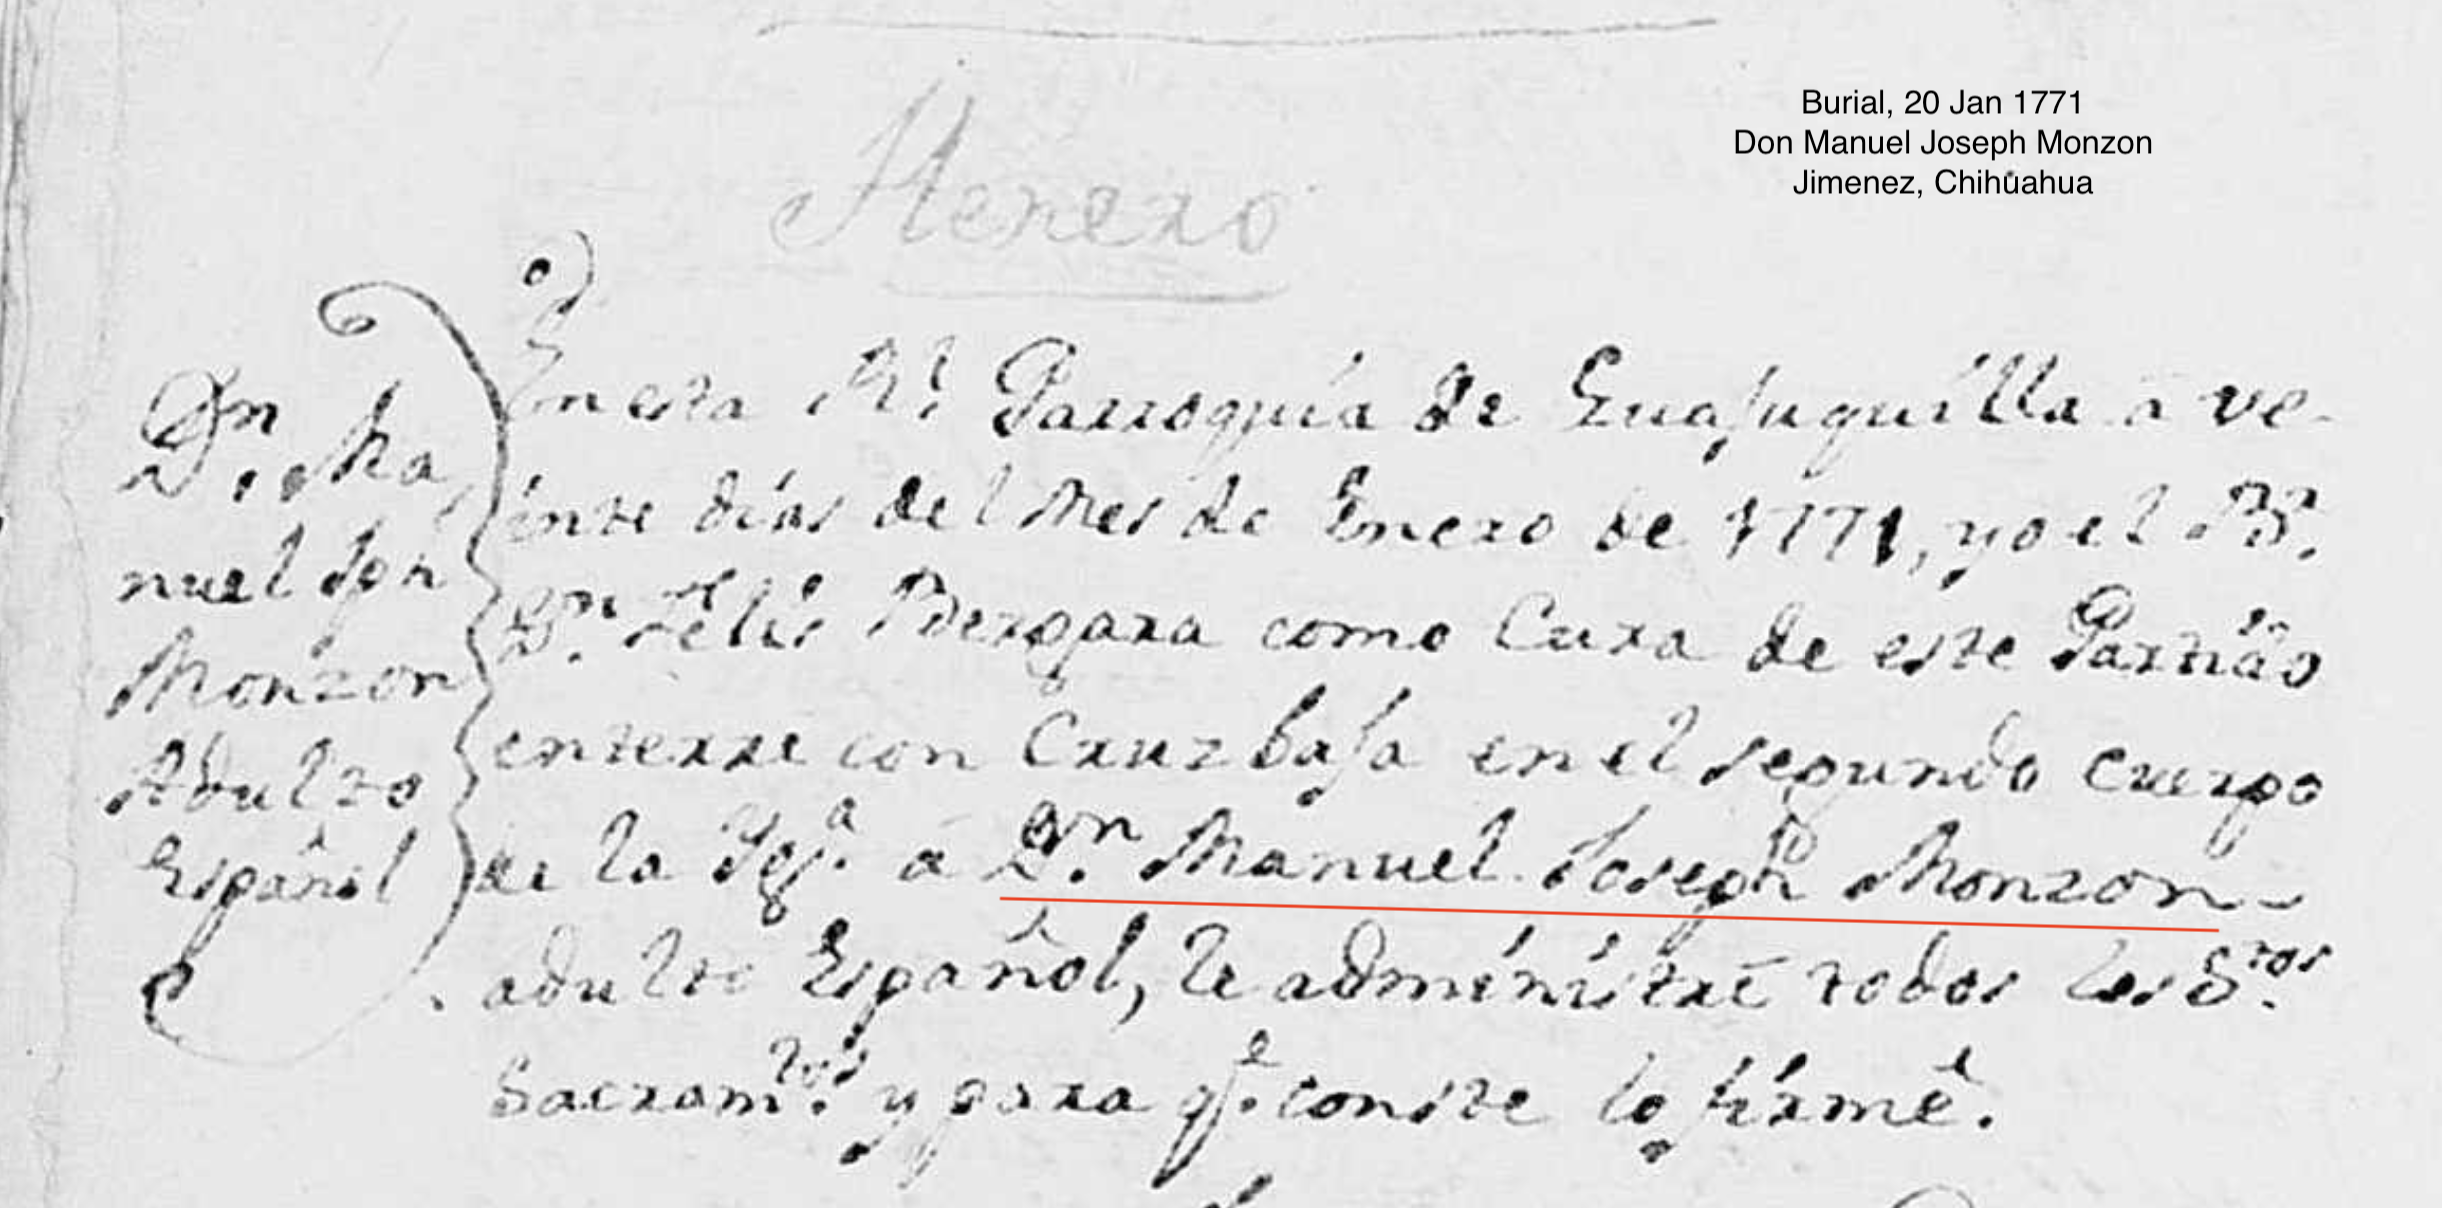 Burial, 20 Jan 1771
Don Manuel Joseph Monzon
Jimenez, Chihuahua
Henero
Dn. Ma
nuel Jph
Monzon
Adulto
Español
En esta Rl. Parroquia de Guajuquilla â ve
inte dias del Mes de Enero de 1771, yo el Br.
Dn. Felis Bergara como Cura de este Partido
enterre con Cruz baja en el segundo cuerpo
de la Yga. â Dn. Manuel Joseph Monzon
adulto Español, le administrê todos los Stos.
Sacramtos. y para qe. conste lo firmê.